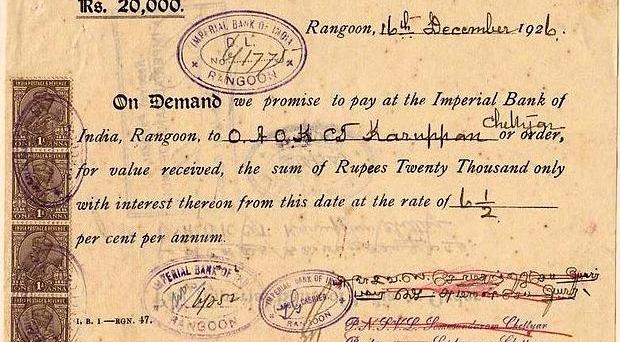 Rs. 20,000.
Rangoon, 16th December 1926.
IMPERIAL BANK OF INDIA
D. L.
RANGOON
On Demand we promise to pay at the Imperial Bank of
Chettyar
India, Rangoon, to O A O K CT Karuppan or order,
for value received, the sum of Rupees Twenty Thousand only
with interest thereon from this date at the rate of 6 1/2
per cent per annum.
INDIA POSTAGE & REVENUE
1A
ANNA
INDIA POSTAGE & REVENUE
1A
ANNA
INDIA POSTAGE & REVENUE
1A
ANNA
INDIA POSTAGE & REVENUE
IMPERIAL BANK OF
RANGOON
IMPERIAL BANK OF INDIA
RANGOON
I. B. I—RGN. 47.
Chettyar